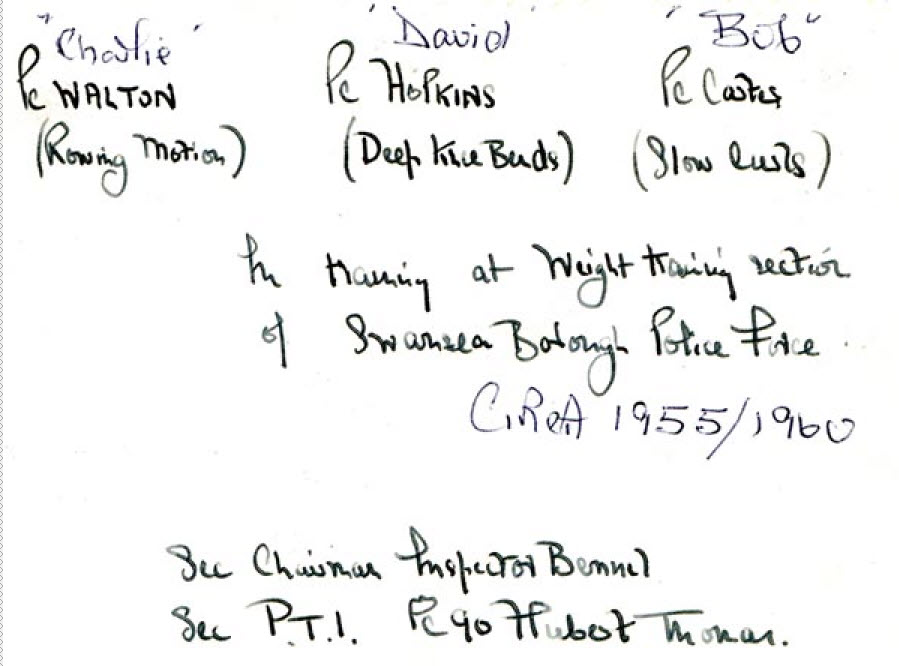 "Charlie" "David" "Bob"
Pc WALTON Pc HOPKINS Pc Coates
(Rowing Motion) (Deep Knee Bends) (Slow Curls)
In training at Weight training section
of Swansea Borough Police Force.
CiRcA 1955/1960
Sec Chairman Inspector Bennel
Sec P.T.I. Pc 90 Hubert Thomas.